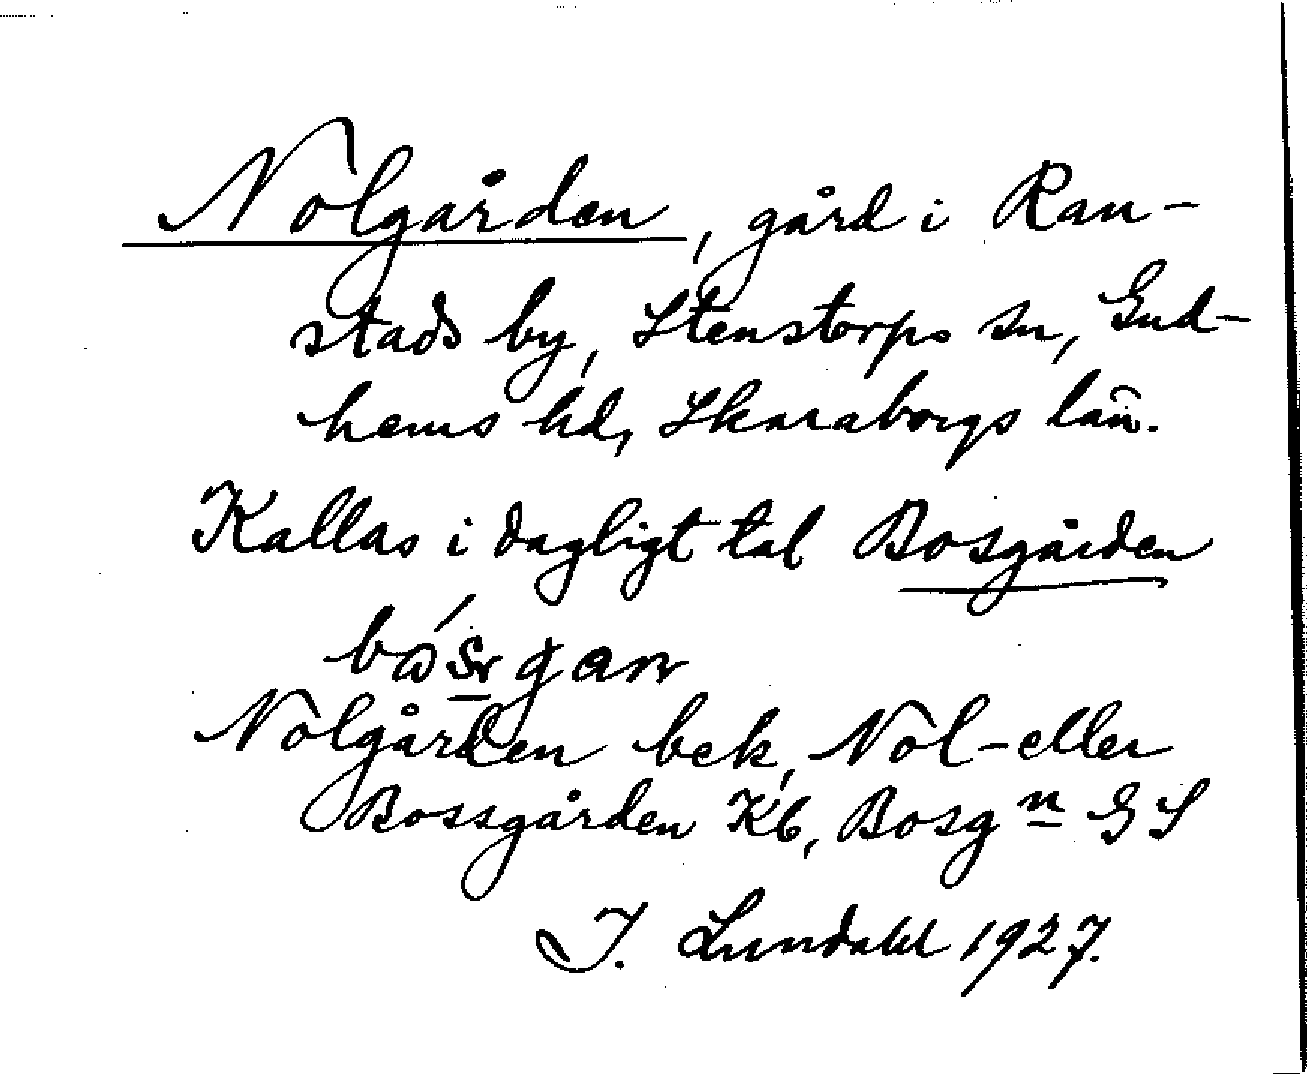 Nolgården, gård i Ran-
stads by, Stenstorps sn, Gud-
hems hd, Skaraborgs län.
Kallas i dagligt tal Bosgården
Nolgården bek, Nol- eller
Bossgården Kb, Bosgn GS
I. Lundahl 1927.